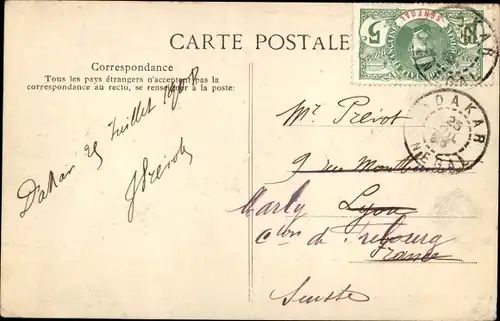 CARTE POSTALE
Correspondance
Tous les pays étrangers n'acceptent pas la
correspondance au recto, se renseigner à la poste:
Dakar 25 Juillet 1908
Mr Prévot
9 rue
Lyon
Marly
Con de Fribourg
France
Suisse
5
SÉNÉGAL
DAKAR
25
DAKAR